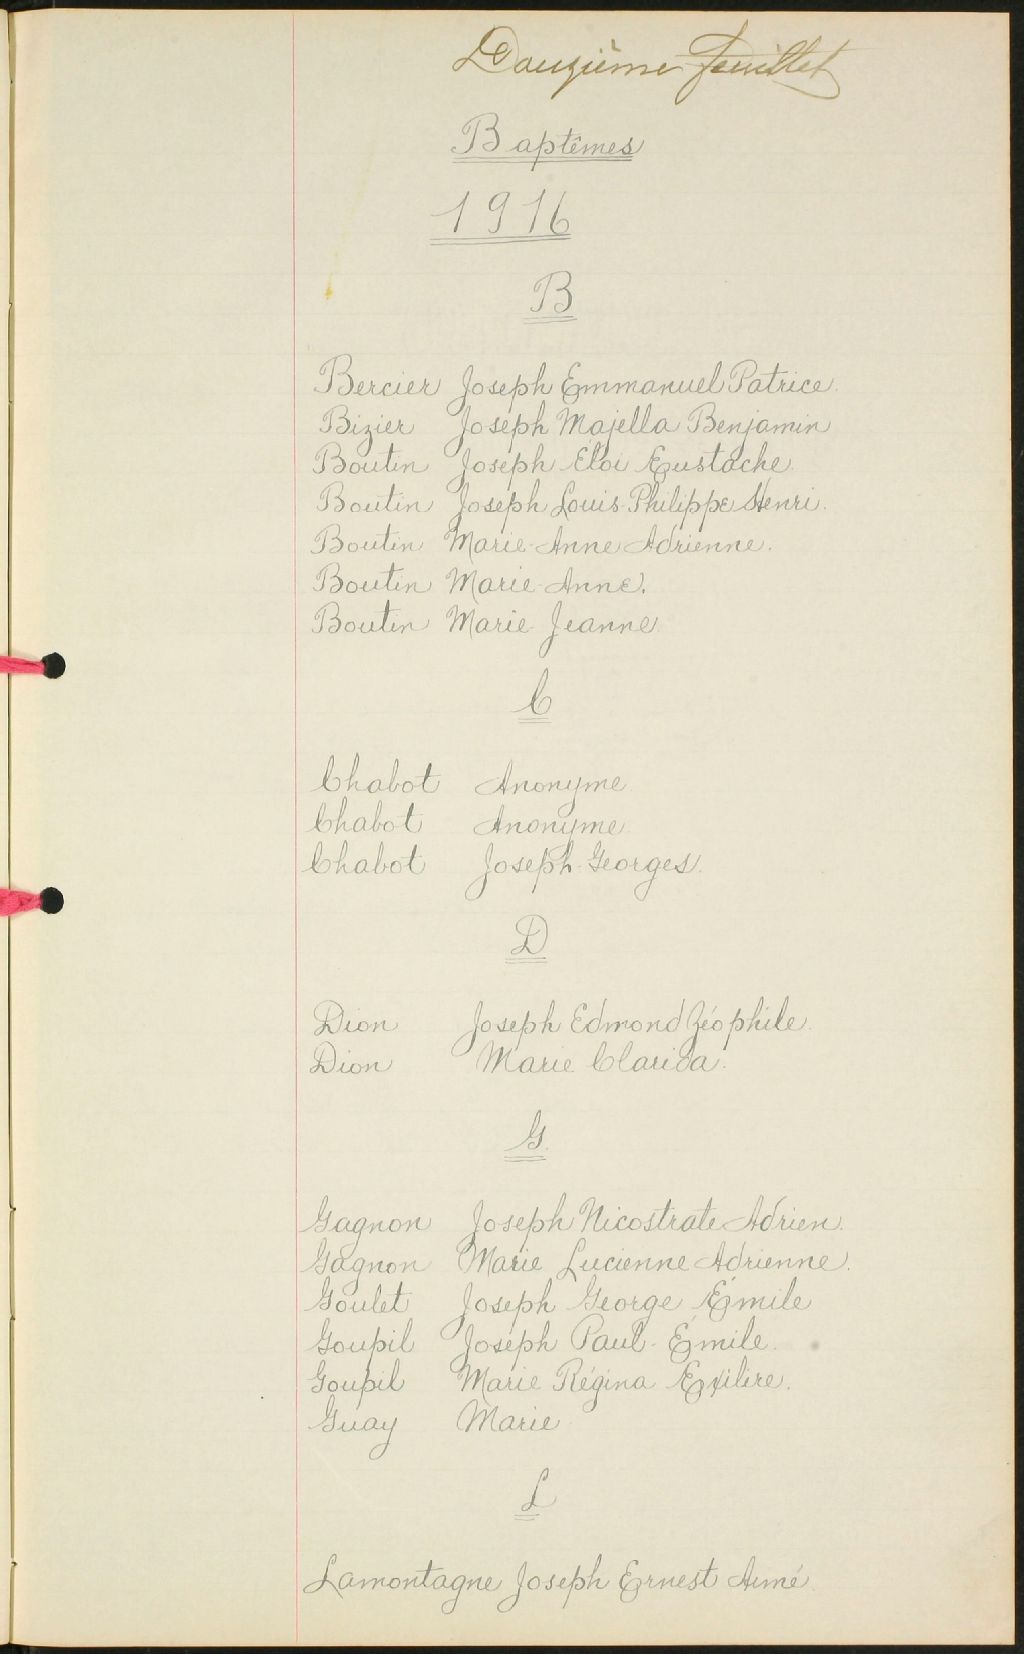 Douzième feuillet
Baptêmes
1916
B
Bercier Joseph Emmanuel Patrice.
Bizier Joseph Majella Benjamin
Boutin Joseph Éloi Eustache.
Boutin Joseph Louis-Philippe Henri.
Boutin Marie-Anne Adrienne.
Boutin Marie-Anne.
Boutin Marie-Jeanne.
C
Chabot Anonyme.
Chabot Anonyme.
Chabot Joseph-Georges.
D
Dion Joseph Edmond Zéophile.
Dion Marie Clarida.
G.
Gagnon Joseph Nicostrate Adrien.
Gagnon Marie Lucienne Adrienne.
Goulet Joseph George Émile
Goupil Joseph Paul-Émile.
Goupil Marie Régina
Guay Marie
L
Lamontagne Joseph Ernest Aimé.